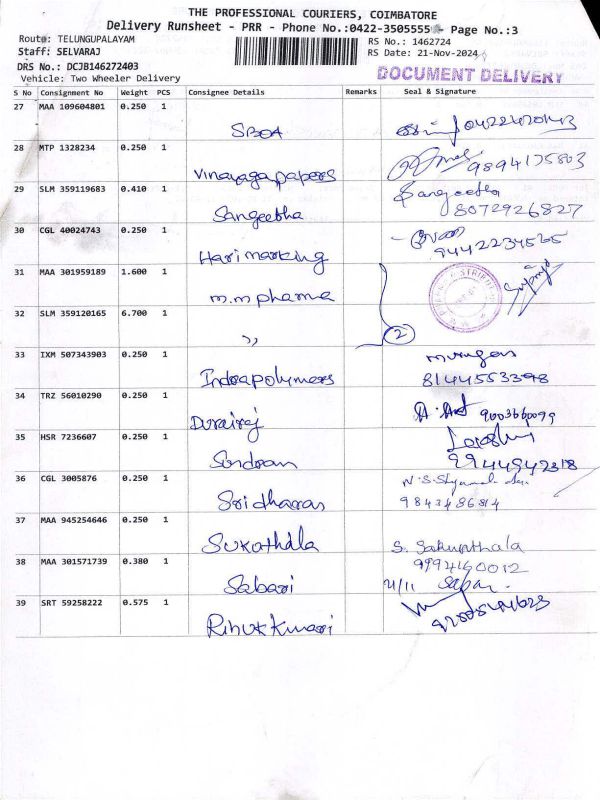 THE PROFESSIONAL COURIERS, COIMBATORE
Delivery Runsheet - PRR - Phone No.:0422-3505555 - Page No.:3
Route: TELUNGUPALAYAM
RS No.: 1462724
Staff: SELVARAJ
RS Date: 21-Nov-2024
DRS No.: DCJB146272403
DOCUMENT DELIVERY
Vehicle: Two Wheeler Delivery
S No Consignment No Weight PCS Consignee Details Remarks Seal & Signature
27 MAA 109604801 0.250 1
SBOA
28 MTP 1328234 0.250 1
Vinayaga papers 9894175803
29 SLM 359119683 0.410 1
Sangeetha
Sangeetha 8072926827
30 CGL 40024743 0.250 1
Hari marking 9442234565
31 MAA 301959189 1.600 1
m.m pharma
32 SLM 359120165 6.700 1
,, 2
33 IXM 507343903 0.250 1
murugan
Indrapolymers 8144553398
34 TRZ 56010290 0.250 1
Durairaj
35 HSR 7236607 0.250 1
Sundram
36 CGL 3005876 0.250 1
Sridharan
37 MAA 945254646 0.250 1
Sukathala S. Sakunthala
38 MAA 301571739 0.380 1
9994160012
Sabari
39 SRT 59258222 0.575 1